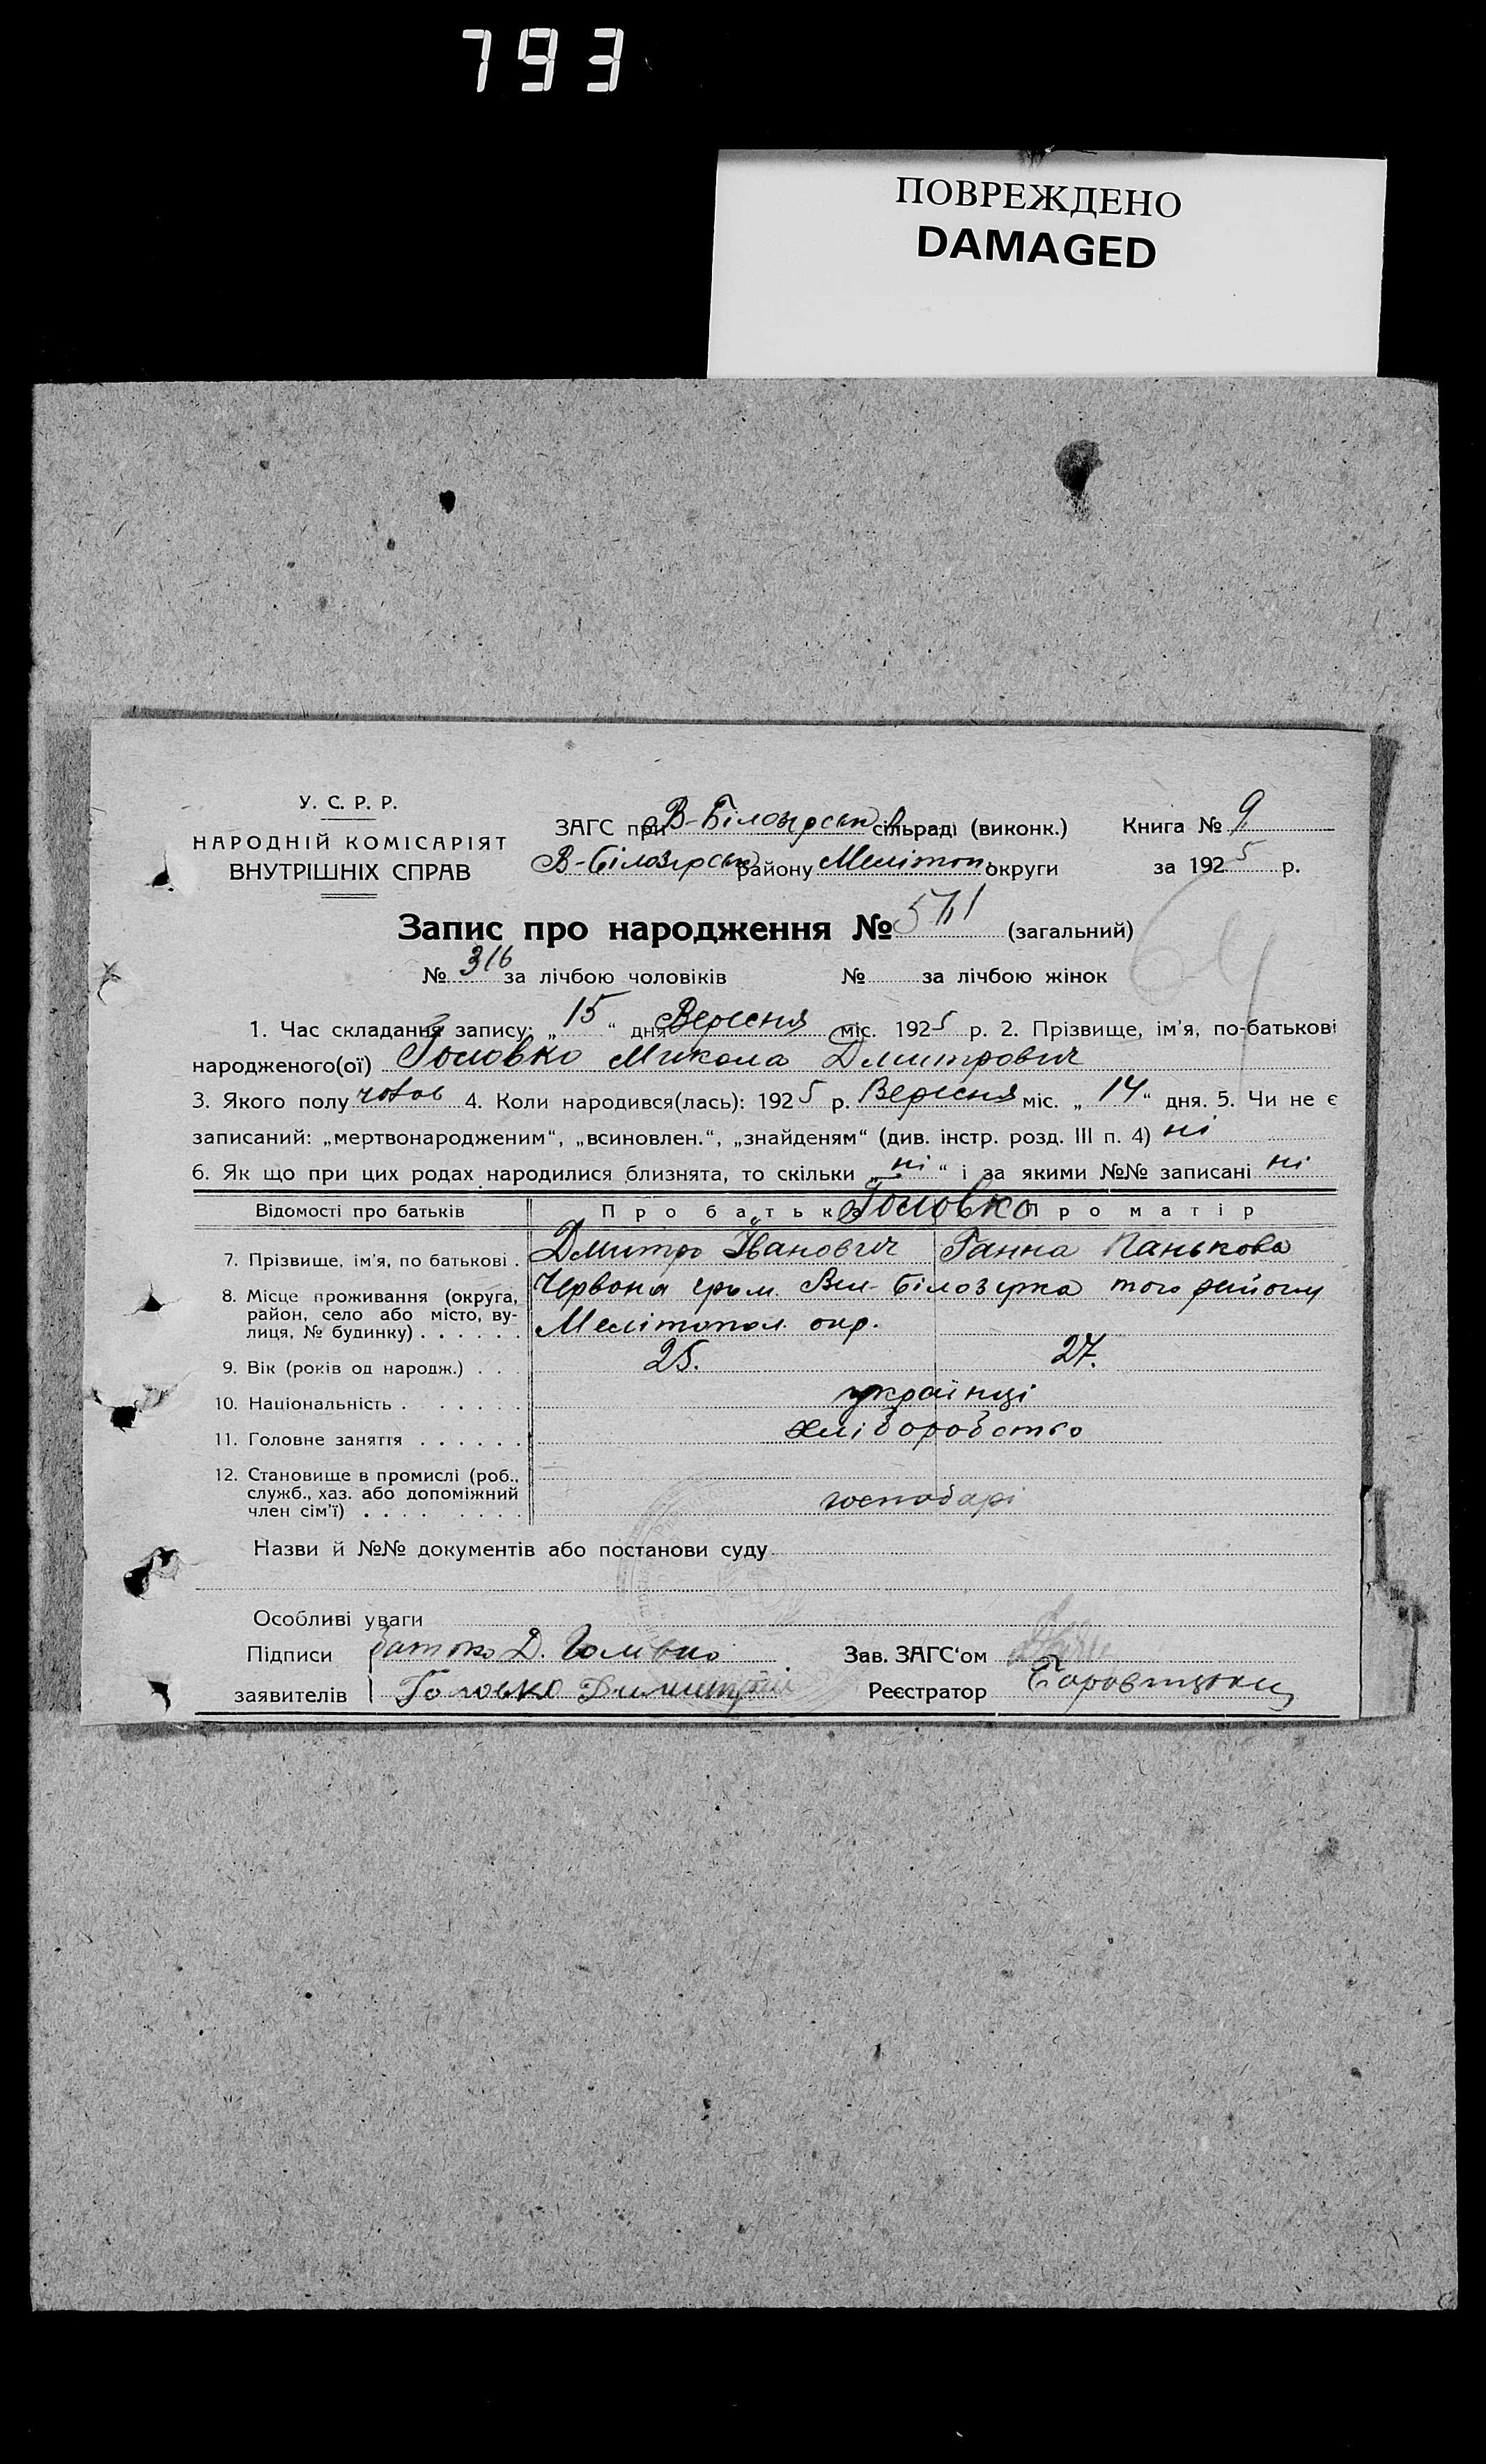 793
ПОВРЕЖДЕНО
DAMAGED
У. С. Р. Р.
НАРОДНІЙ КОМІСАРІЯТ
ВНУТРІШНІХ СПРАВ
ЗАГС при В-Білозірськ сільраді (виконк.)
В-Білозірськ району Мелітоп. округи
Книга № 9
за 1925 р.
Запис про народження № (загальний)
№ 316 за лічбою чоловіків № за лічбою жінок
1. Час складання запису: „15“ дня Вересня міс. 1925 р. 2. Прізвище, ім'я, по-батькові
народженого(ої) Головко Микола Дмитрович
3. Якого полу чолов 4. Коли народився(лась): 1925 р. Вересня міс. „14“ дня. 5. Чи не є
записаний: „мертвонародженим“, „всиновлен.“, „знайденям“ (див. інстр. розд. III п. 4) ні
6. Як що при цих родах народилися близнята, то скільки „ні“ і за якими №№ записані ні
Відомості про батьків Про батька Головко Про матір
7. Прізвище, ім'я, по батькові . Дмитро Іванович Ганна Панькова
8. Місце проживання (округа, район, село або місто, вулиця, № будинку) . . . . . .
Червона гром. Вел-Білозірка того району
Мелітопол. окр.
9. Вік (років од народж.) . . . 25. 27.
10. Національність . . . . . . . українці
11. Головне заняття . . . . . . хліборобство
12. Становище в промислі (роб.,
служб., хаз. або допоміжний
член сім'ї) . . . . . . . . господарі
Назви й №№ документів або постанови суду
Особливі уваги
Підписи батько Д. Головко Зав. ЗАГС'ом
заявителів Головко Димитрій Реєстратор